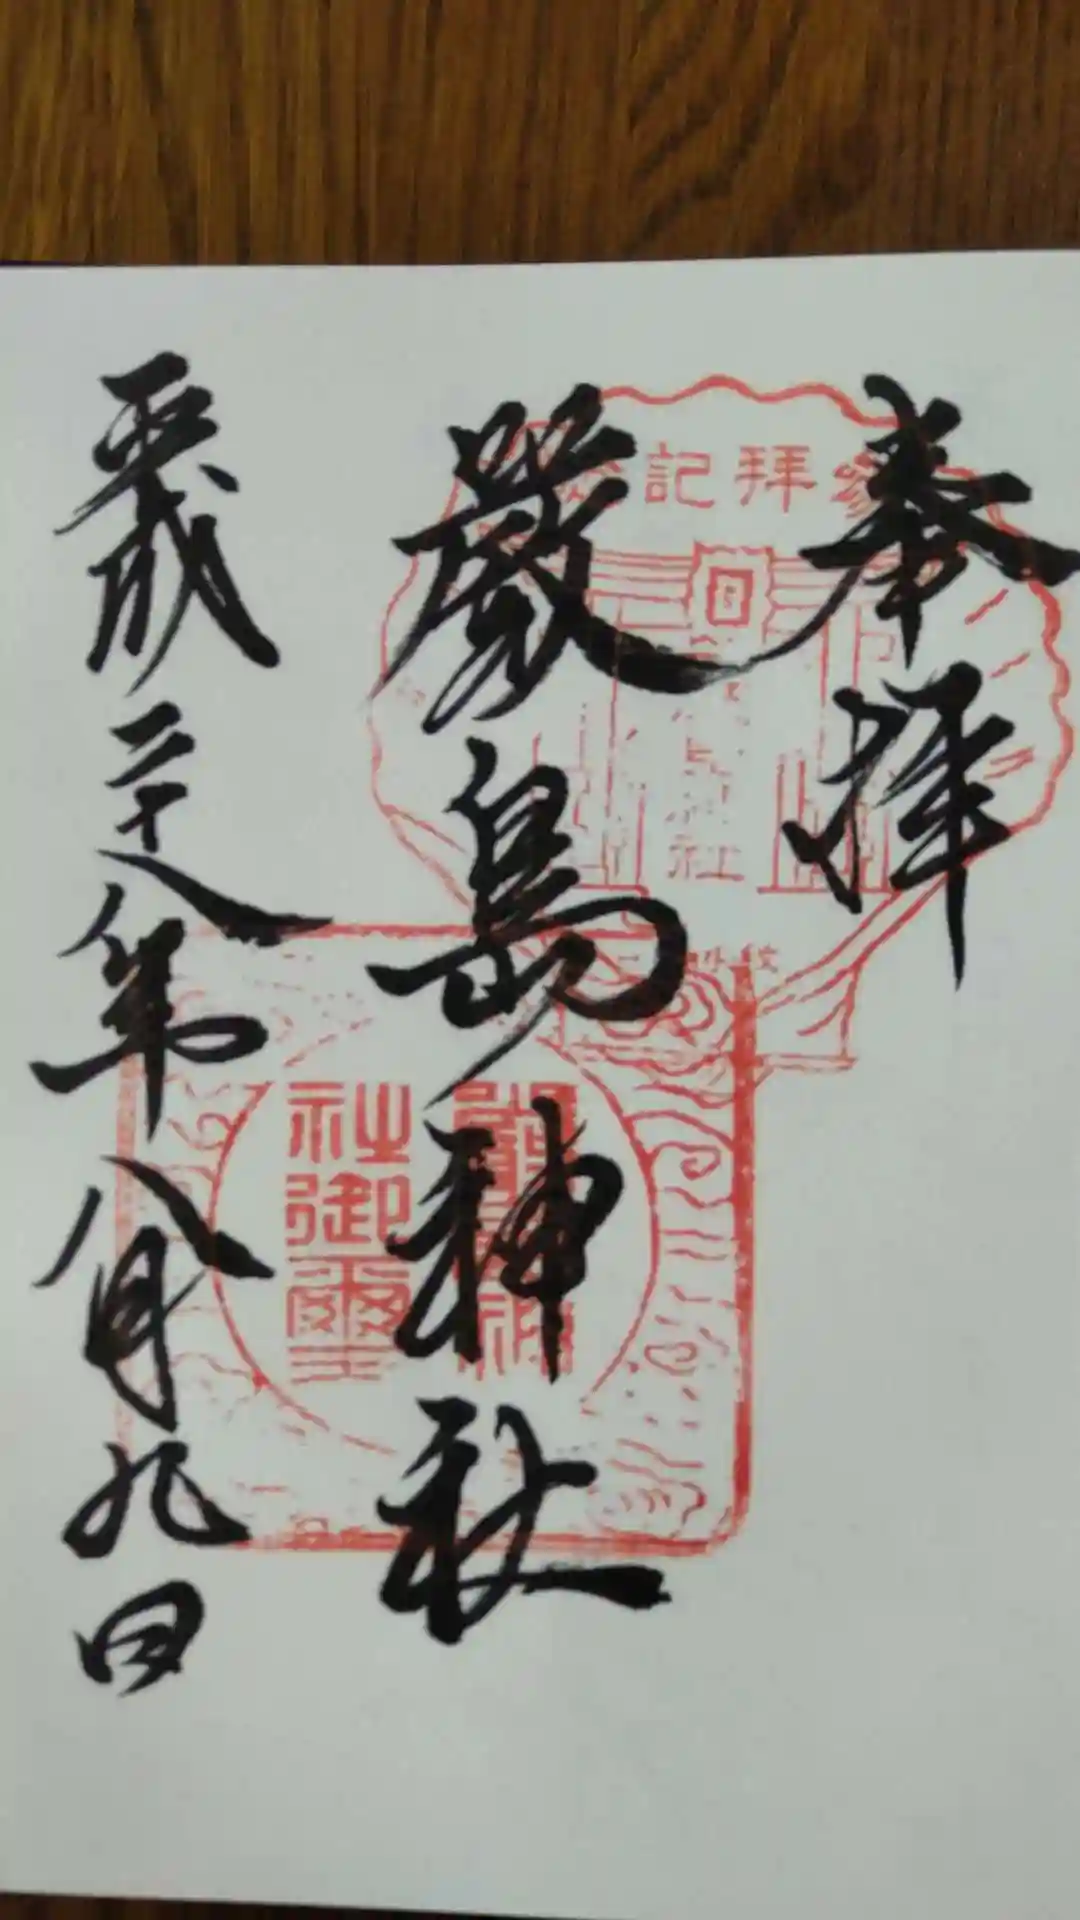 奉拝
嚴島神社
平成二十八年八月九日
參拝記念
嚴島神社
嚴島神
社御璽